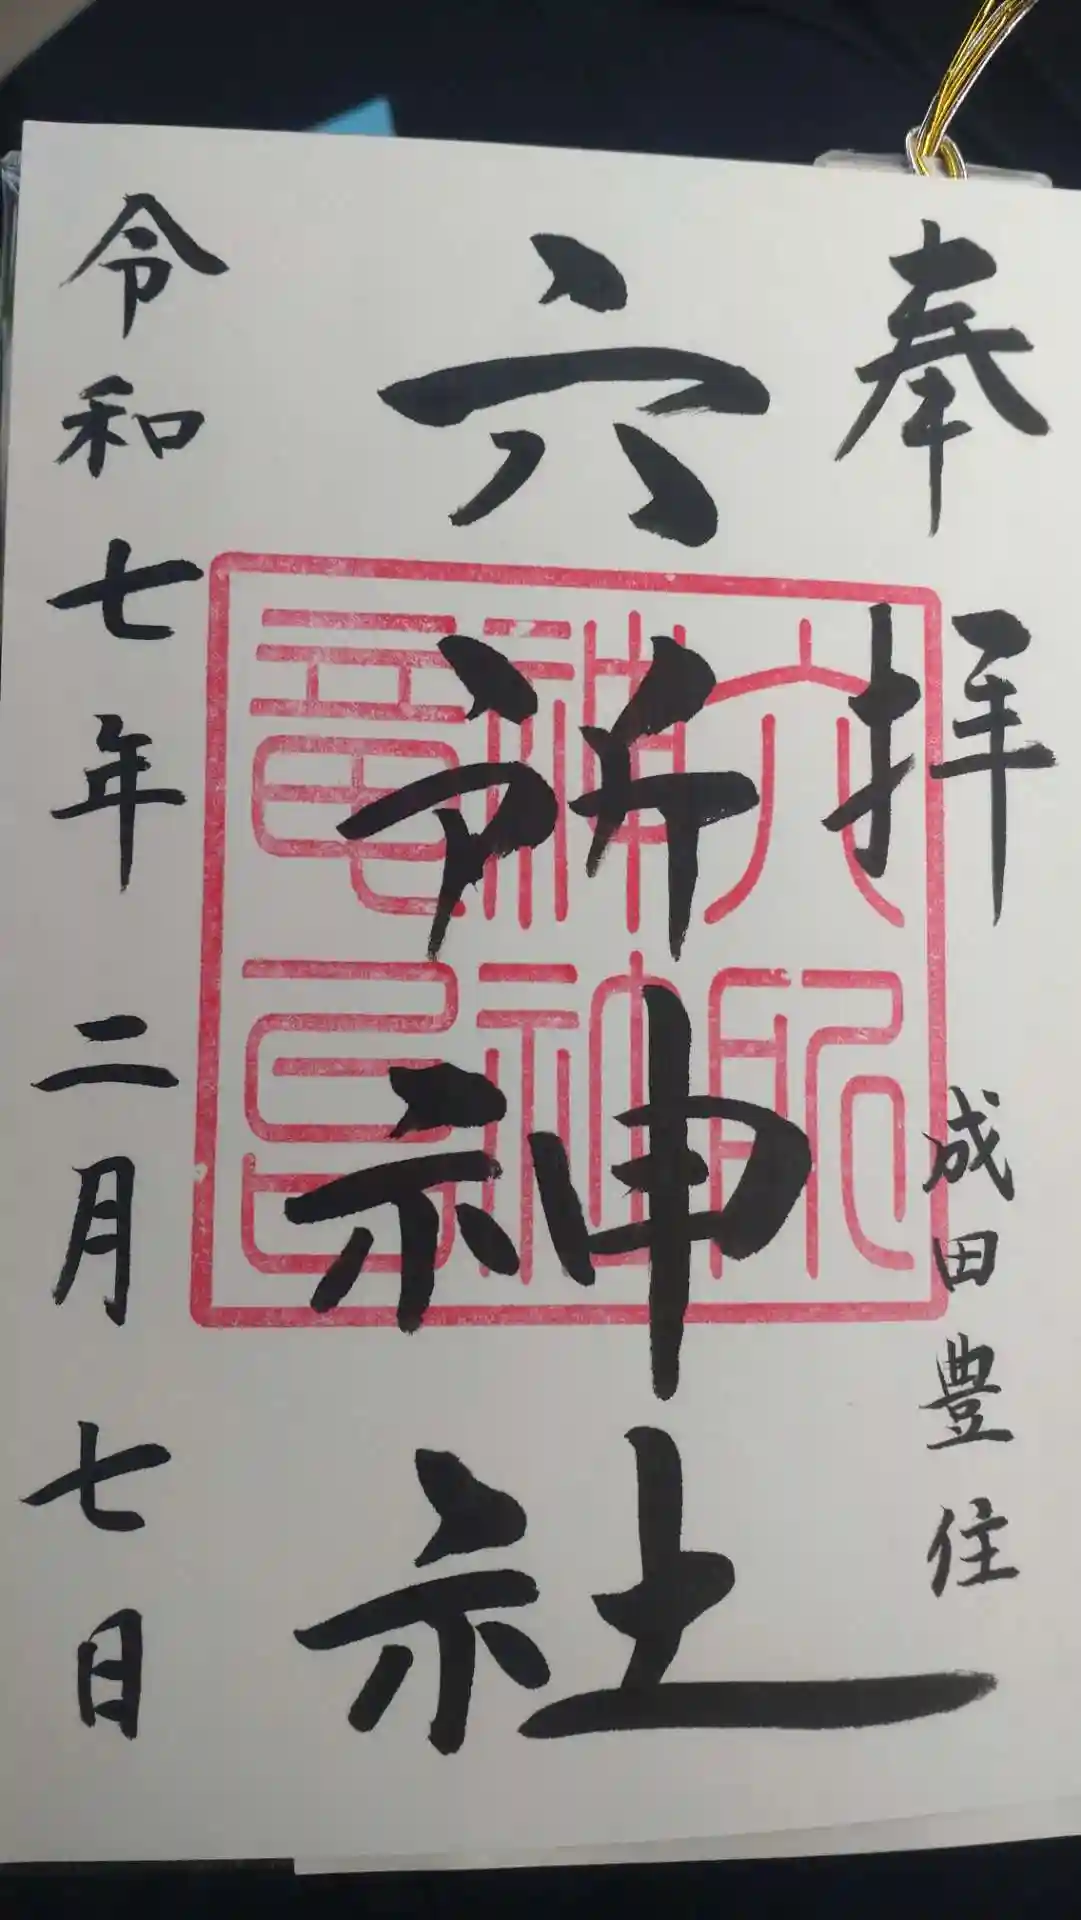 奉拝
成田豊住
六所神社
六所
神社
令和七年二月七日